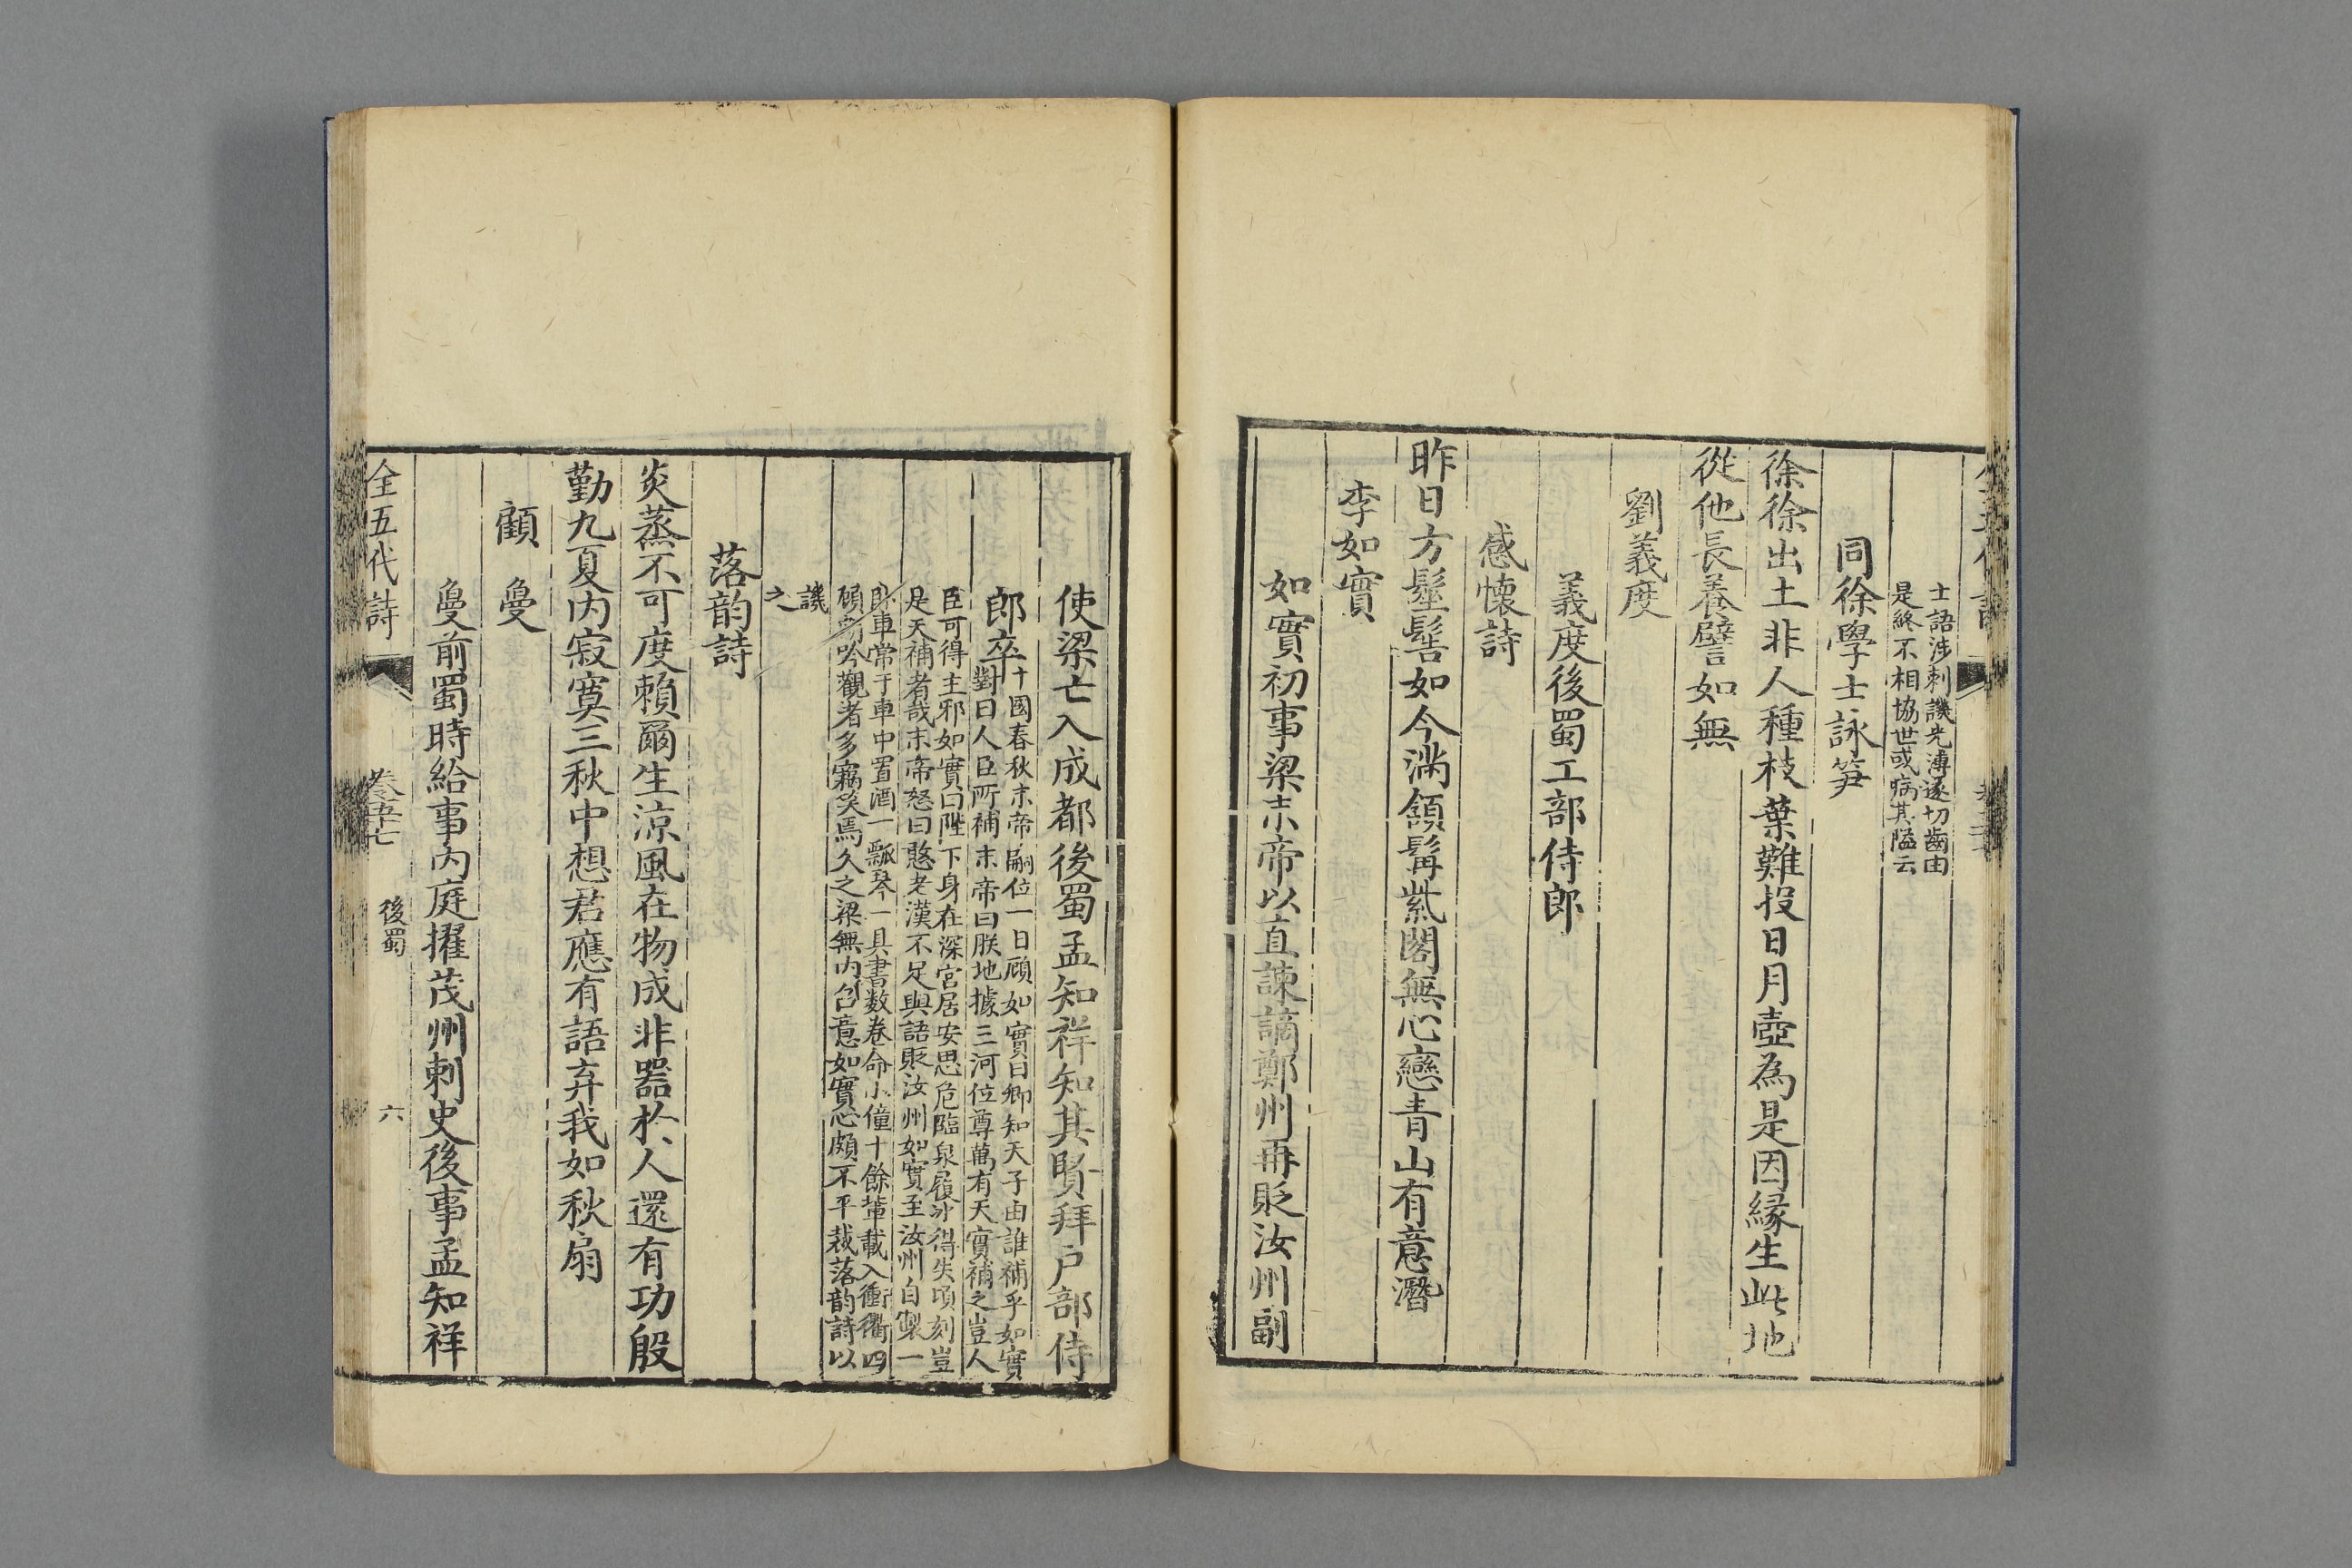 士語涉刺譏光溥遂切齒由
是終不相協世或病其隘云
同徐學士詠笋
徐徐出土非人種枝葉難投日月壺為是因緣生此地
從他長養譬如無
劉義度
義度後蜀工部侍郎
感懷詩
昨日方髽髻如今滿頷髯紫閣無心戀青山有意潛
李如實
如實初事梁末帝以直諫謫鄭州再貶汝州副
使梁亡入成都後蜀孟知祥知其賢拜户部侍
郎卒
十國春秋末帝嗣位一日顧如實曰卿知天子由誰補乎如實
對曰人臣所補末帝曰朕地據三河位尊萬有天實補之豈人
臣可得主邪如實曰陛下身在深宮居安思危臨泉履冰得失頃刻豈
是天補者哉末帝怒曰憨老漢不足與語貶汝州如實至汝州自製一
卧車常于車中置酒一瓢琴一具書数卷命小僮十餘輩載入衝衢四
顧朗吟觀者多竊笑焉久之梁無内召意如實心頗不平裁落韵詩以
譏
之
落韵詩
炎蒸不可度賴爾生涼風在物成非器於人還有功殷
勤九夏内寂寞三秋中想君應有語弃我如秋扇
顧夐
夐前蜀時給事内庭擢茂州刺史後事孟知祥
全五代詩
卷五十七
後蜀
六